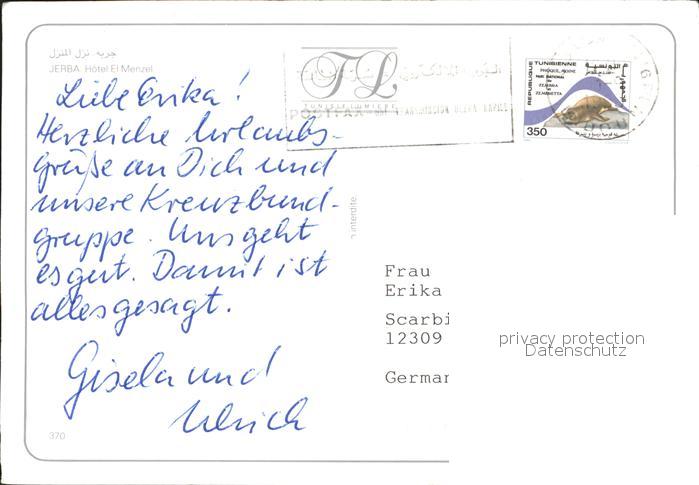 جربه . نزل المنزل
JERBA. Hôtel El Menzel
Liebe Erika!
Herzliche Urlaubs-
grüße an Dich und
unsere Kreuzbund-
gruppe. Uns geht
es gut. Damit ist
alles gesagt.
Gisela und
Ulrich
370
TL
TUNISIE LUMIERE
REPUBLIQUE TUNISIENNE
PHOQUE MOINE
PARC NATIONAL
ZEMBRA
ZEMBRETTA
350
n interdite
Frau
Erika
Scarbi
12309
German
privacy protection
Datenschutz